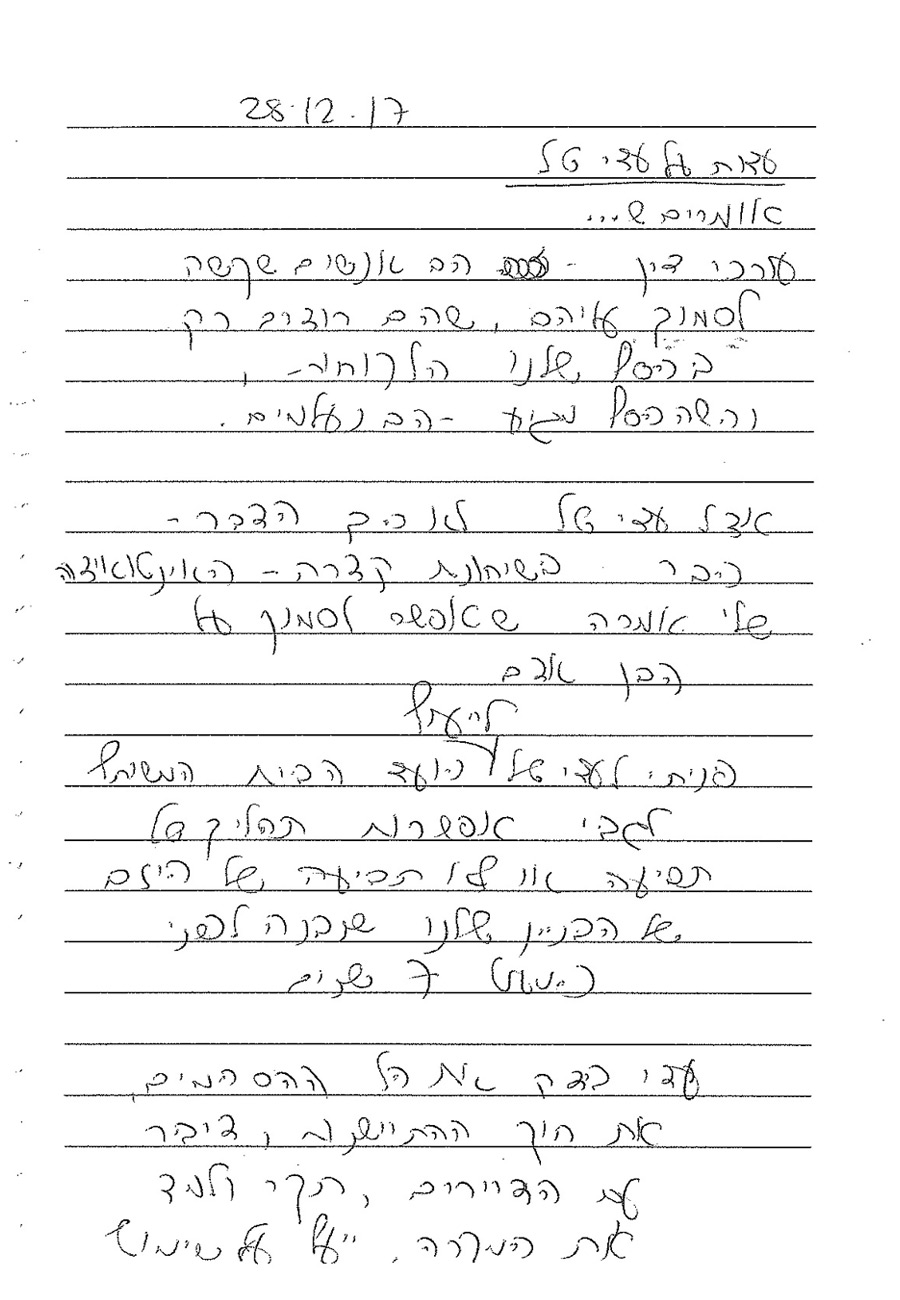 28.12.17
עדות על עדי טל
אומרים ש...
עורכי דין - הם אנשים שקשה
לסמוך עליהם, שהם רוצים רק
בכסף שלנו הלקוחות,
וכשהכסף מגיע - הם נעלמים.
אצל עדי טל לא כך הדבר -
כבר בשיחות קצרה - האינטואיציה
שלי אמרה שאפשר לסמוך על
הבן אדם
לייעוץ
פניתי לעדי טל כועד הבית המשותף
לגבי אפשרות תהליך של
תביעה או אי תביעה של היזם
של הבניין שלנו שנבנה לפני
כמעט 7 שנים
עדי בדק את כל ההסכמים,
את חוק ההתיישנות, דיבר
עם הדיירים, חקר ולמד
את המקרה. ייעץ על שימוש